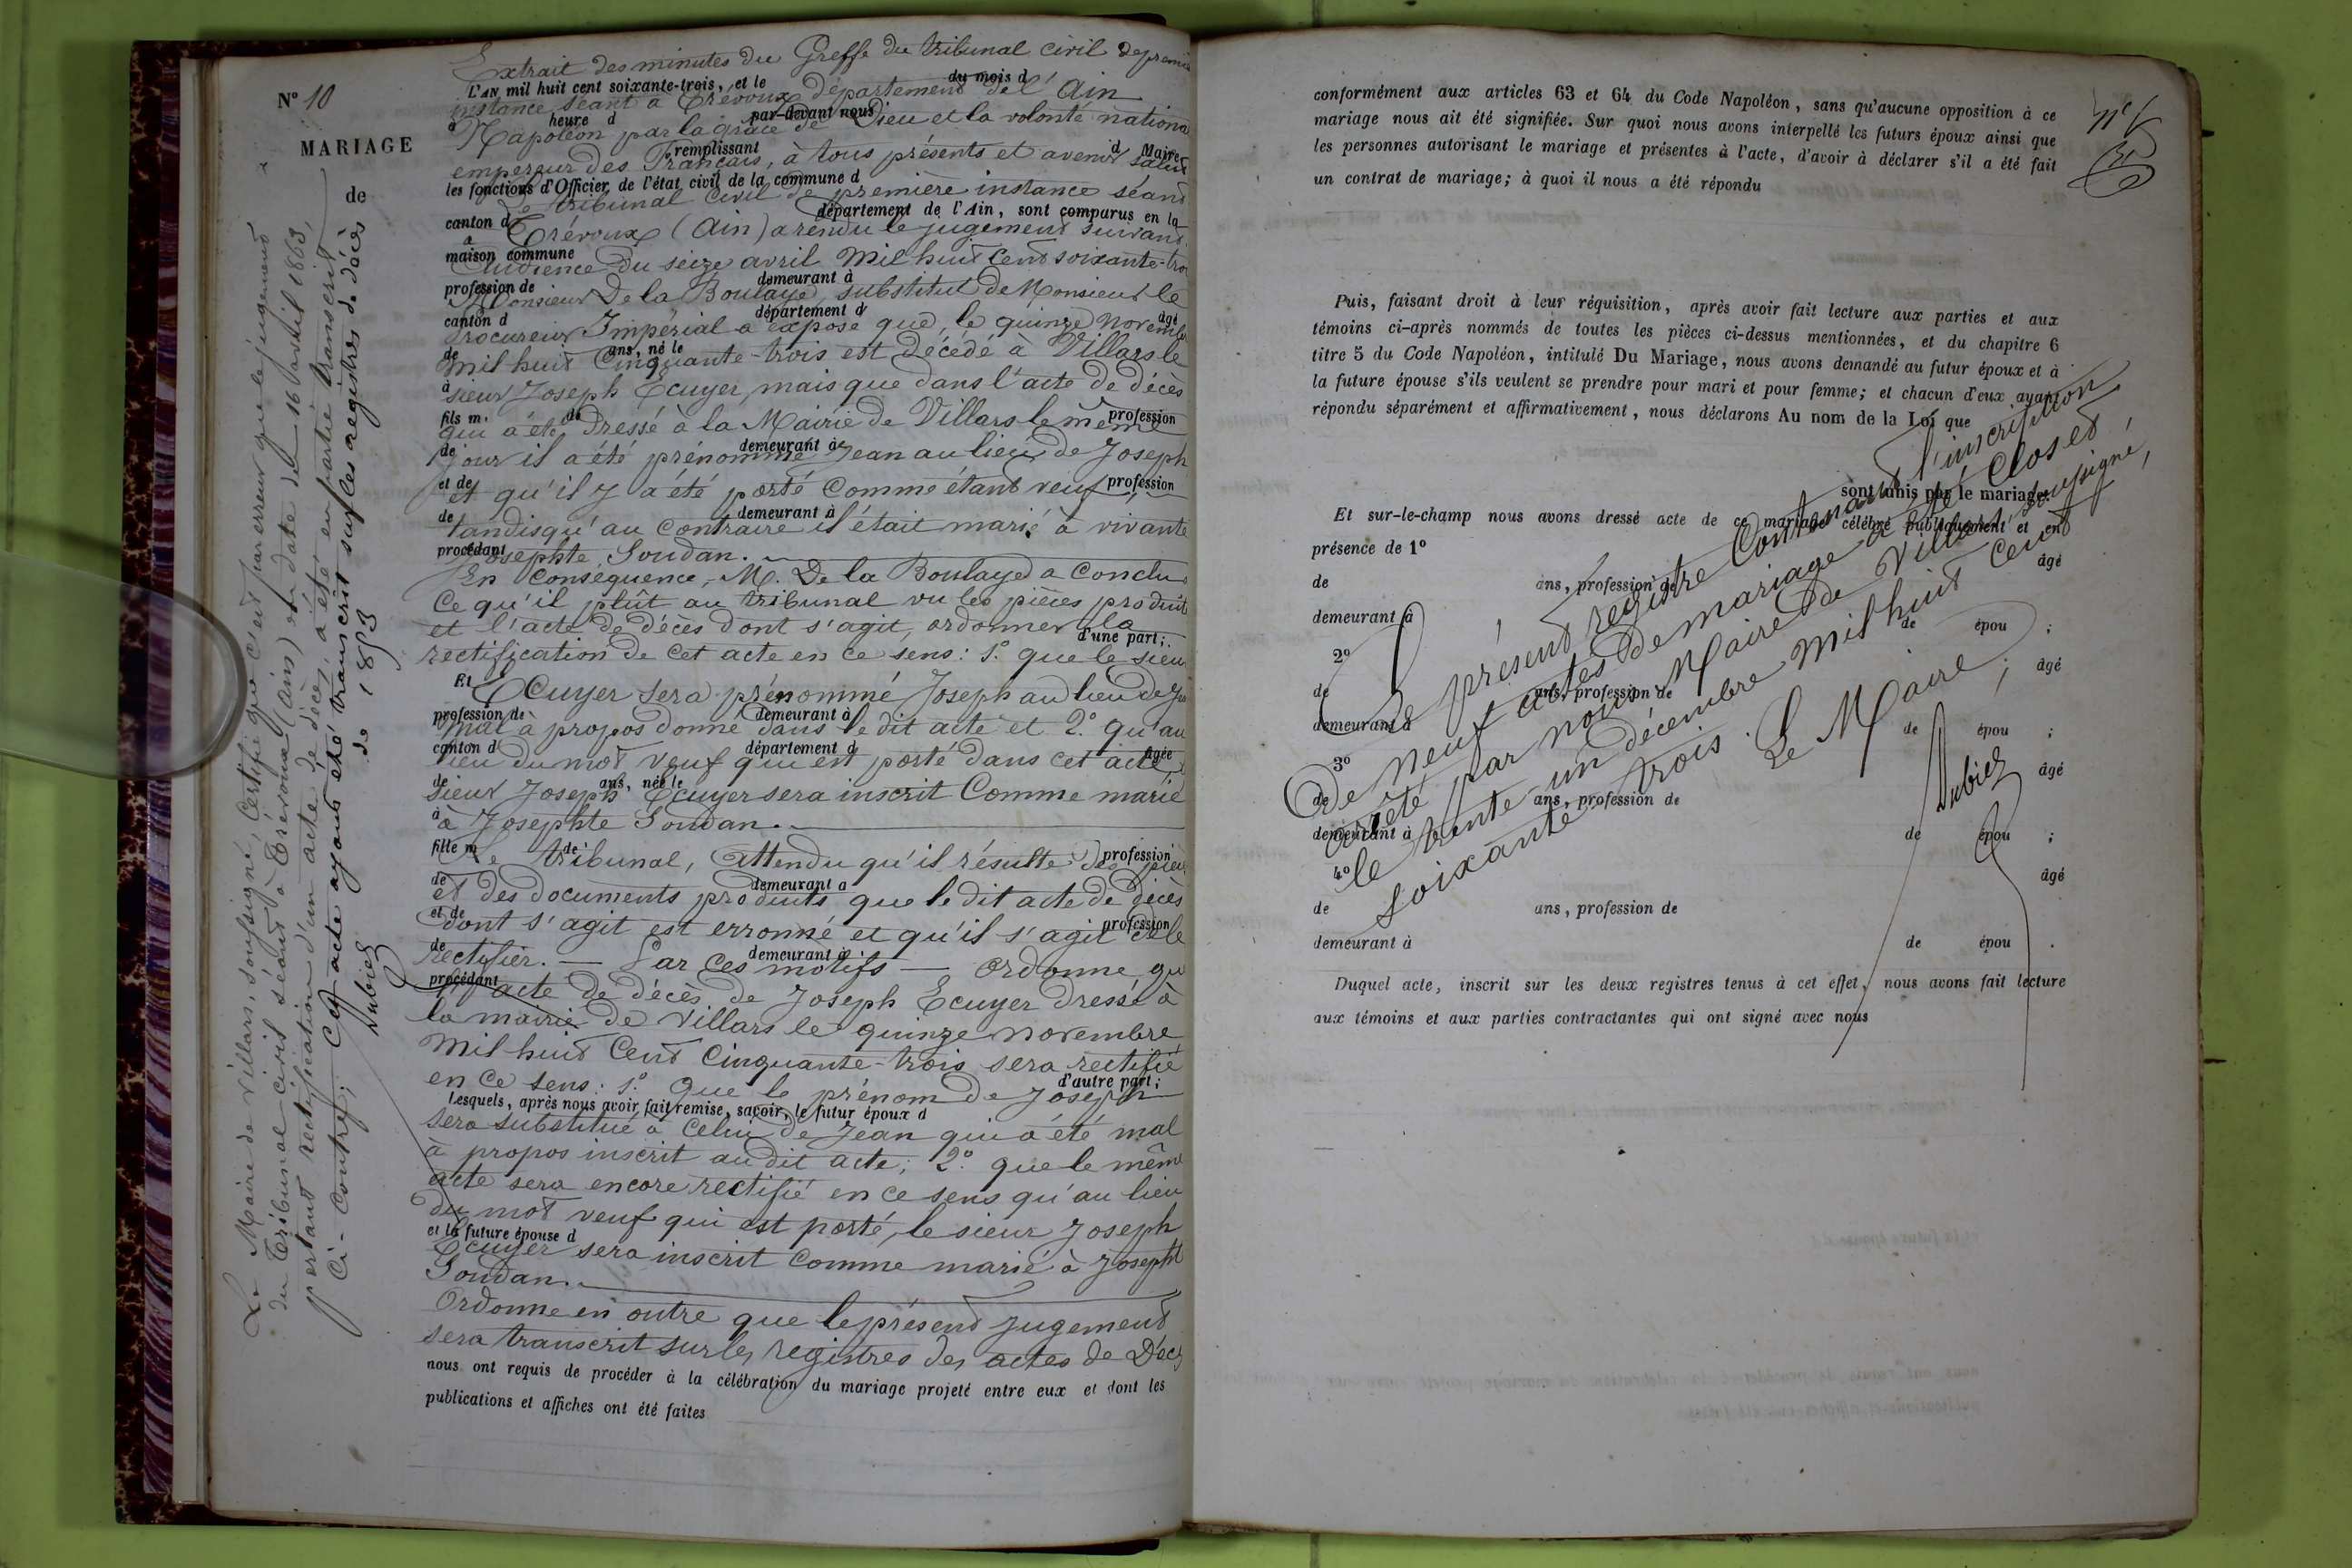 N° 10
MARIAGE
de
Le Maire de Villars, soussigné, certifie que c'est par erreur que le jugement
du Tribunal civil séant à Trévoux (Ain) en date du 16 avril 1863,
portant rectification d'un acte de décès, a été en partie transcrit
ci-contre; cet acte ayant été transcrit sur les registres de décès
de 1853
Dubiez
Extrait des minutes du Greffe du tribunal civil de premi
L'AN mil huit cent soixante-trois, et le du mois d
instance séant à Trévoux département de l'Ain
à heure d par-devant nous
Napoléon par la grâce de Dieu et la volonté nationa
remplissant d Maire
empereur des Français, à tous présents et avenir salut
les fonctions d'Officier de l'état civil de la commune d
Le tribunal civil de première instance séant
canton d département de l'Ain, sont comparus en la
à Trévoux (Ain) a rendu le jugement suivant.
maison commune
Audience du seize avril mil huit cent soixante-troi
profession de demeurant à
Monsieur De la Boulaye, substitut de Monsieur le
canton d département d âgé
Procureur Impérial a exposé que, le quinze novembre
de ans, né le
mil huit cinquante-trois est décédé à Villars le
à
sieur Joseph Ecuyer, mais que dans l'acte de décès
fils m. de profession
qui a été dressé à la Mairie de Villars le même
de demeurant à
jour il a été prénommé Jean au lieu de Joseph
et de profession
et qu'il y a été porté comme étant veuf,
de demeurant à
tandisqu'au contraire il était marié à vivante
procédant
Josephte Soudan.
En conséquence, M. De la Boulaye a conclu
ce qu'il plût au tribunal vu les pièces produit
et l'acte de décès dont s'agit, ordonner la
d'une part;
rectification de cet acte en ce sens: 1.° que le sieu
Et
Ecuyer sera prénommé Joseph au lieu de
profession de demeurant à
mal à propos donné dans le dit acte et 2.° qu'au
canton d département d âgée
lieu du mot veuf qui est porté dans cet acte
de ans, née le
sieur Joseph Ecuyer sera inscrit comme marié
à
à Josephte Soudan.
fille m de profession
Le tribunal, attendu qu'il résulte des pièc
de demeurant à
et des documents produits que le dit acte de décès
et de profession
dont s'agit est erronné et qu'il s'agit de le
de demeurant à
rectifier. — Par ces motifs — ordonne qu
procédant
l'acte de décès de Joseph Ecuyer dressé à
la mairie de Villars le quinze novembre
mil huit cent cinquante-trois sera rectifié
en ce sens: 1.° que le prénom de Joseph
d'autre part;
Lesquels, après nous avoir fait remise, savoir, le futur époux d
sera substitué à celui de Jean qui a été mal
à propos inscrit au dit acte; 2.° que le même
acte sera encore rectifié en ce sens qu'au lieu
du mot veuf qui est porté, le sieur Joseph
et la future épouse d
Ecuyer sera inscrit comme marié à Josepht
Soudan.
Ordonne en outre que le présent jugement
sera transcrit sur les registres des actes de Décès
nous ont requis de procéder à la célébration du mariage projeté entre eux et dont les
publications et affiches ont été faites
conformément aux articles 63 et 64 du Code Napoléon, sans qu'aucune opposition à ce
mariage nous ait été signifiée. Sur quoi nous avons interpellé les futurs époux ainsi que
les personnes autorisant le mariage et présentes à l'acte, d'avoir à déclarer s'il a été fait
un contrat de mariage; à quoi il nous a été répondu
Puis, faisant droit à leur réquisition, après avoir fait lecture aux parties et aux
témoins ci-après nommés de toutes les pièces ci-dessus mentionnées, et du chapitre 6
titre 5 du Code Napoléon, intitulé Du Mariage, nous avons demandé au futur époux et à
la future épouse s'ils veulent se prendre pour mari et pour femme; et chacun d'eux ayant
répondu séparément et affirmativement, nous déclarons Au nom de la Loi que
sont unis par le mariage.
Et sur-le-champ nous avons dressé acte de ce mariage, célébré publiquement et en
présence de 1°
âgé
de ans, profession de
demeurant à de épou ;
2° âgé
de ans, profession de
demeurant à de épou ;
3° âgé
de ans, profession de
demeurant à de épou ;
4° âgé
de ans, profession de
demeurant à de épou .
Duquel acte, inscrit sur les deux registres tenus à cet effet, nous avons fait lecture
aux témoins et aux parties contractantes qui ont signé avec nous
Le présent registre contenant l'inscription
de neuf actes de mariage a été clos et
arrêté par nous Maire de Villars, soussigné,
le trente-un décembre mil huit cent
soixante-trois. Le Maire;
Dubiez